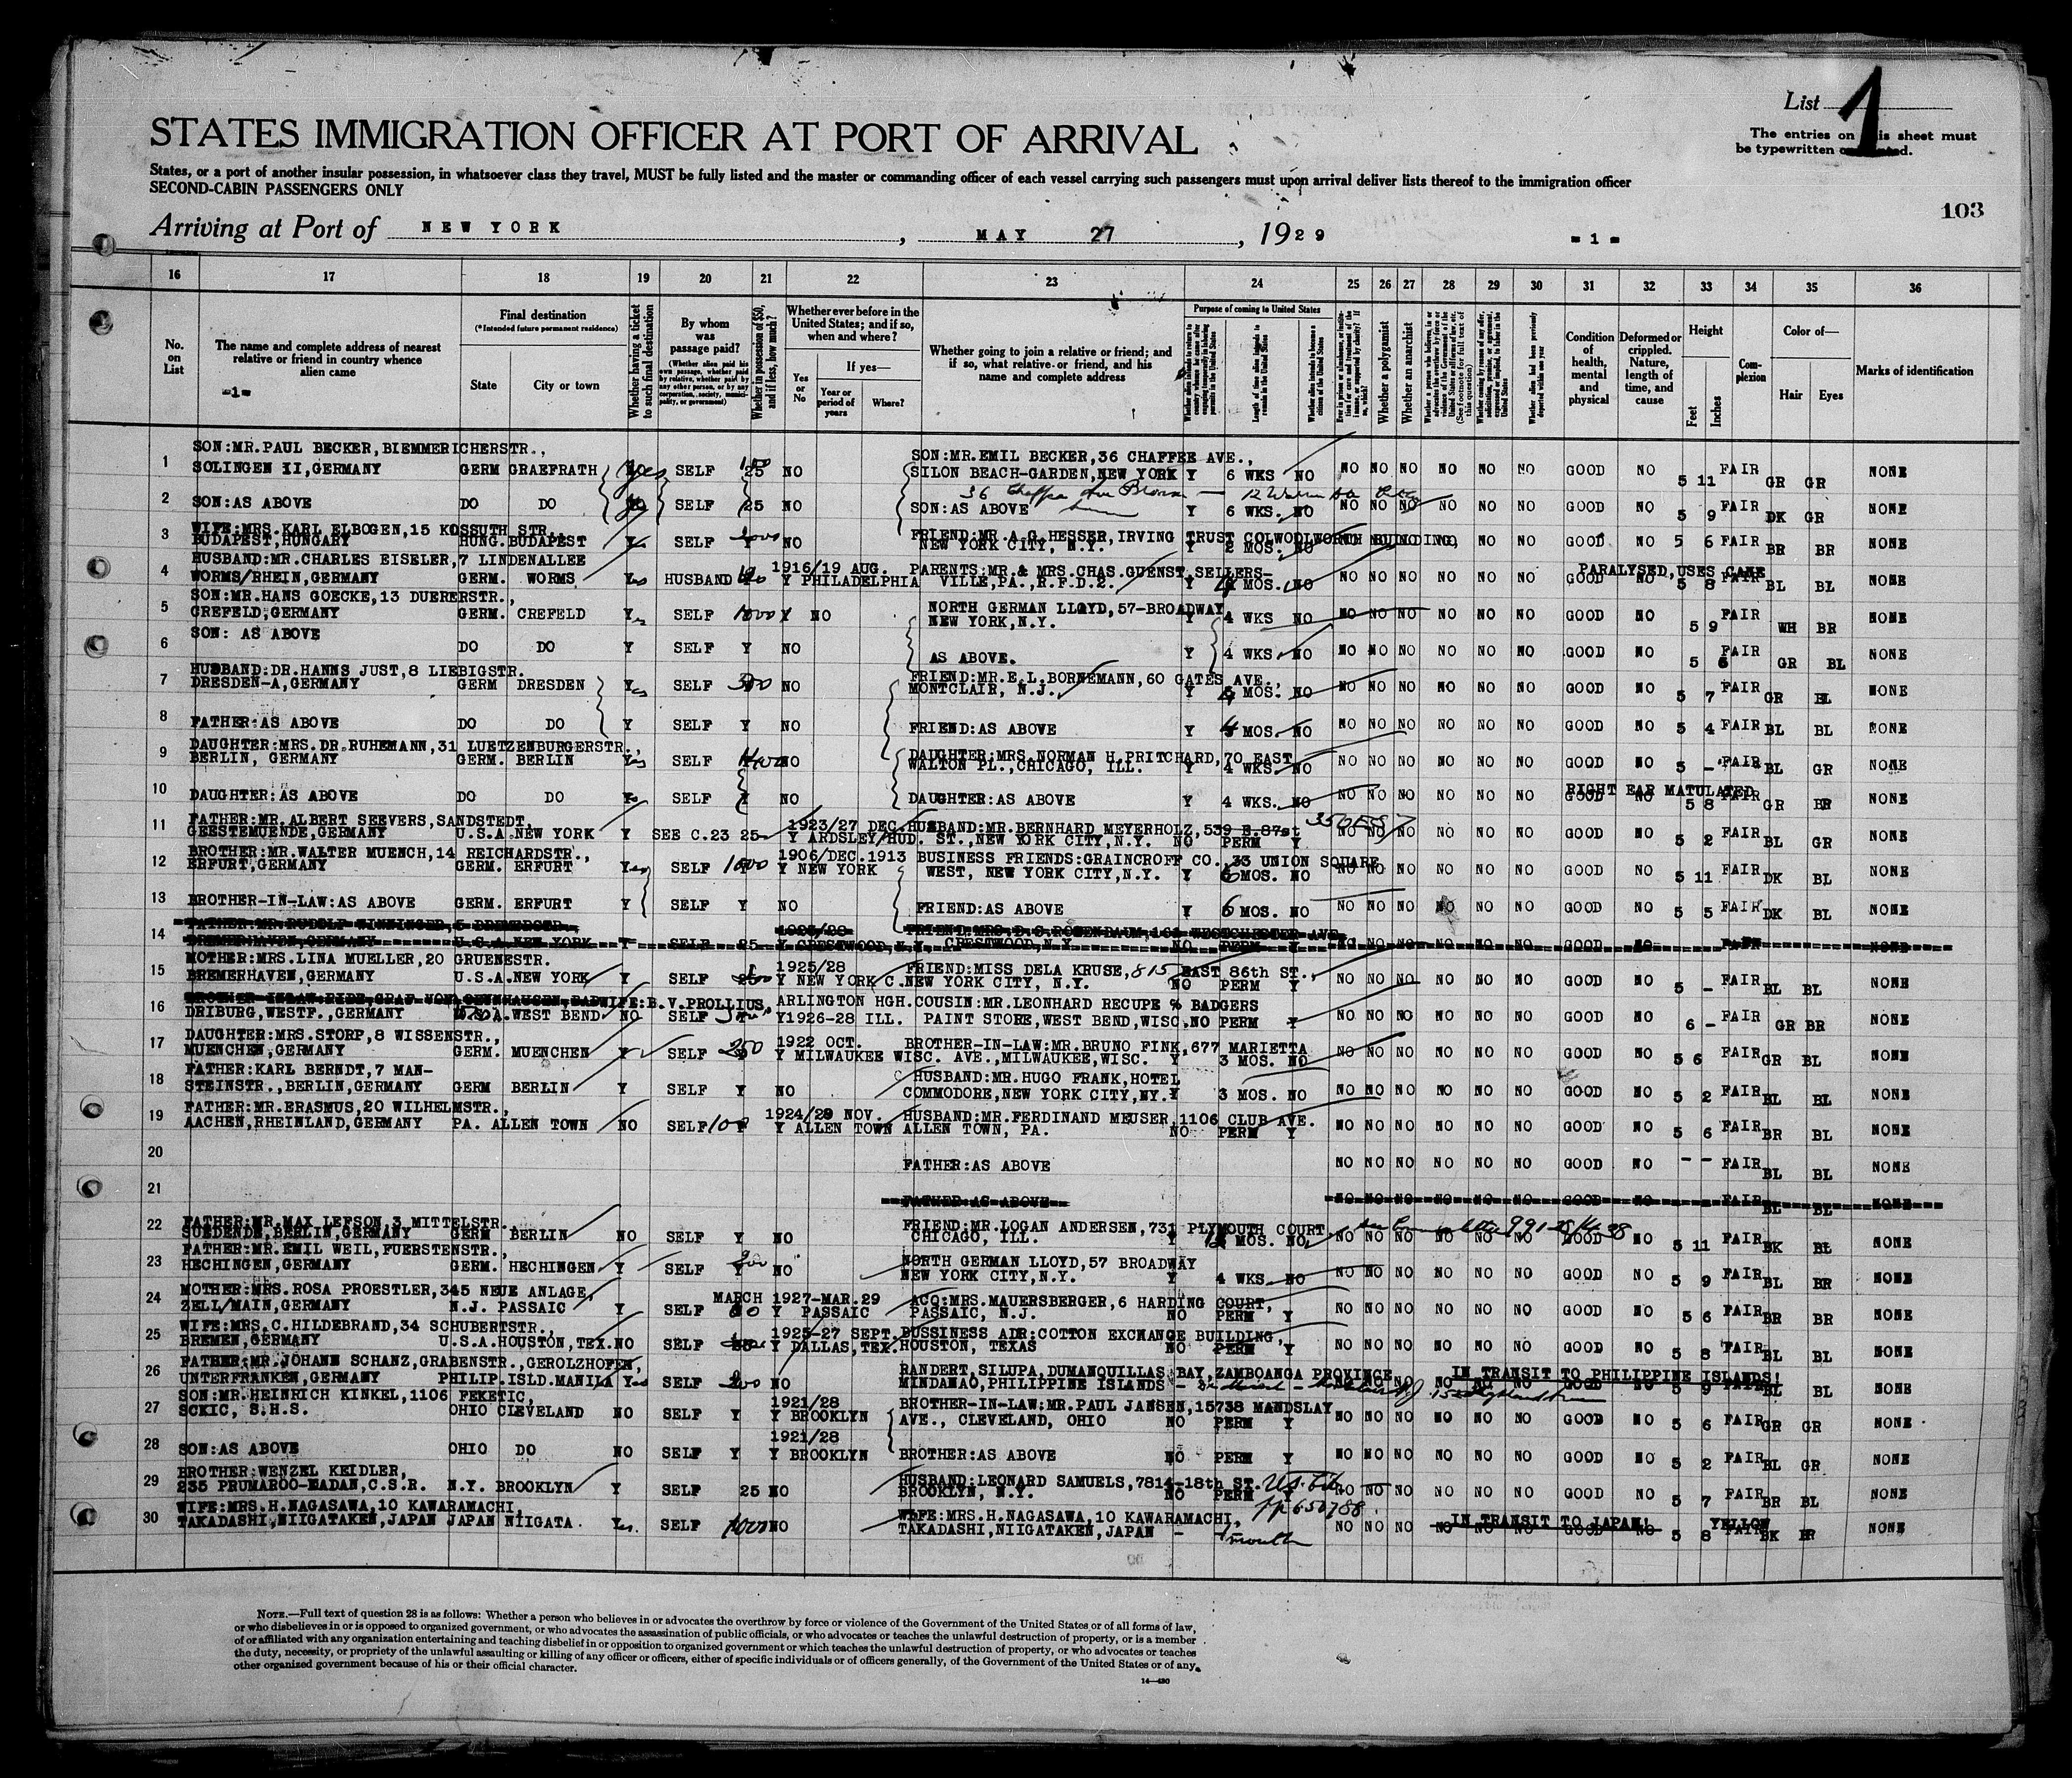 List 1
The entries on this sheet must
be typewritten or printed.
STATES IMMIGRATION OFFICER AT PORT OF ARRIVAL
States, or a port of another insular possession, in whatsoever class they travel, MUST be fully listed and the master or commanding officer of each vessel carrying such passengers must upon arrival deliver lists thereof to the immigration officer
SECOND-CABIN PASSENGERS ONLY
103
Arriving at Port of NEW YORK, MAY 27, 1929 -1-
16 17 18 19 20 21 22 23 24 25 26 27 28 29 30 31 32 33 34 35 36
No. on List
The name and complete address of nearest relative or friend in country whence alien came
-1-
Final destination
(*Intended future permanent residence)
State City or town
Whether having a ticket to such final destination
By whom was passage paid?
(Whether alien paid his own passage, whether paid by relative, whether paid by any other person, or by any corporation, society, municipality, or government)
Whether in possession of $50, and if less, how much?
Whether ever before in the United States; and if so, when and where?
Yes or No
If yes—
Year or period of years Where?
Whether going to join a relative or friend; and if so, what relative or friend, and his name and complete address
Purpose of coming to United States
Length of time alien intends to remain in the United States
Whether alien intends to become a citizen of the United States
Whether a polygamist
Whether an anarchist
Condition of health, mental and physical
Deformed or crippled. Nature, length of time, and cause
Height
Feet Inches
Complexion
Color of—
Hair Eyes
Marks of identification
SON:MR.PAUL BECKER,BIEMMERICHERSTR., SON:MR.EMIL BECKER,36 CHAFFEE AVE.,
1 SOLINGEN II,GERMANY GERM GRAEFRATH Yes SELF 25 NO SILON BEACH-GARDEN,NEW YORK Y 6 WKS NO NO NO NO NO NO NO GOOD NO 5 11 FAIR GR GR NONE
2 SON:AS ABOVE DO DO SELF 25 NO SON:AS ABOVE Y 6 WKS. NO NO NO NO NO NO NO GOOD NO 5 9 FAIR DK GR NONE
WIFE:MRS.KARL ELBOGEN,15 KOSSUTH STR. FRIEND:MR.A.G.HESSER,IRVING TRUST COLWOOLWORTH BUILDING,
3 BUDAPEST,HUNGARY HUNG.BUDAPEST Yes SELF NO NEW YORK CITY, N.Y. Y 2 MOS. NO GOOD NO 5 6 FAIR BR BR NONE
HUSBAND:MR.CHARLES EISELER,7 LINDENALLEE 1916/19 AUG. PARENTS:MR.& MRS.CHAS.GUENST,SELLERS- PARALYSED,USES CANE
4 WORMS/RHEIN,GERMANY GERM. WORMS Yes HUSBAND Y PHILADELPHIA VILLE,PA.,R.F.D.2. Y 4 MOS. NO NO NO NO NO NO NO GOOD NO 5 8 FAIR BL BL NONE
SON:MR.HANS GOECKE,13 DUERERSTR., NORTH GERMAN LLOYD,57-BROADWAY
5 CREFELD,GERMANY GERM. CREFELD Yes SELF 1000 NO NEW YORK,N.Y. Y 4 WKS NO NO NO NO NO NO NO GOOD NO 5 9 FAIR WH BR NONE
SON: AS ABOVE
6 DO DO Y SELF Y NO AS ABOVE. Y 4 WKS. NO NO NO NO NO NO NO GOOD NO 5 FAIR GR BL NONE
HUSBAND:DR.HANNS JUST,8 LIEBIGSTR. FRIEND:MR.E.L.BORNEMANN,60 GATES AVE.,
7 DRESDEN-A,GERMANY GERM DRESDEN Yes SELF 300 NO MONTCLAIR, N.J. Y MOS. NO NO NO NO NO NO NO GOOD NO 5 7 FAIR GR BL NONE
8 FATHER:AS ABOVE DO DO Y SELF Y NO FRIEND:AS ABOVE Y 4 MOS. NO NO NO NO NO NO NO GOOD NO 5 4 FAIR BL BL NONE
DAUGHTER:MRS.DR.RUHEMANN,31 LUETZENBURGERSTR., DAUGHTER:MRS.NORMAN H.PRITCHARD,70 EAST
9 BERLIN, GERMANY GERM. BERLIN Yes SELF NO WALTON PL.,CHICAGO, ILL. Y 4 WKS. NO NO NO NO NO NO NO GOOD NO 5 - FAIR BL GR NONE
RIGHT EAR MATULATED
10 DAUGHTER:AS ABOVE DO DO SELF Y NO DAUGHTER:AS ABOVE Y 4 WKS. NO NO NO NO NO NO NO GOOD NO 5 8 FAIR GR BR NONE
FATHER:MR.ALBERT SEEVERS,SANDSTEDT, 1923/27 DEC.HUSBAND:MR.BERNHARD MEYERHOLZ,539 E.87st 350 E 87
11 GEESTEMUENDE,GERMANY U.S.A.NEW YORK Y SEE C.23 25 Y ARDSLEY/HUD. ST.,NEW YORK CITY,N.Y. NO PERM Y NO NO NO NO NO NO GOOD NO 5 2 FAIR BL GR NONE
BROTHER:MR.WALTER MUENCH,14 REICHARDSTR., 1906/DEC.1913 BUSINESS FRIENDS:GRAINCROFF CO.,33 UNION SQUARE
12 ERFURT,GERMANY GERM. ERFURT Yes SELF 1000 Y NEW YORK WEST, NEW YORK CITY,N.Y. Y 6 MOS. NO NO NO NO NO NO NO GOOD NO 5 11 FAIR DK BL NONE
13 BROTHER-IN-LAW:AS ABOVE GERM. ERFURT Y SELF Y NO FRIEND:AS ABOVE Y 6 MOS. NO NO NO NO NO NO NO GOOD NO 5 5 FAIR DK BL NONE
14 U.S.A.NEW YORK Y SELF 25 Y CRESTWOOD,N.Y. CRESTWOOD,N.Y. NO PERM Y NO NO NO NO NO NO GOOD NO FAIR NONE
MOTHER:MRS.LINA MUELLER,20 GRUENESTR. 1925/28 FRIEND:MISS DELA KRUSE,815 EAST 86th ST.,
15 BREMERHAVEN,GERMANY U.S.A.NEW YORK Y SELF Y NEW YORK C.NEW YORK CITY, N.Y. NO PERM Y NO NO NO NO NO NO GOOD NO 5 - FAIR BL BL NONE
WIFE:B.V.PROLLIUS, ARLINGTON HGH.COUSIN:MR.LEONHARD RECUPE % BADGERS
16 DRIBURG,WESTF.,GERMANY U.S.A.WEST BEND NO SELF Y1926-28 ILL. PAINT STORE,WEST BEND,WISC.NO PERM Y NO NO NO NO NO NO GOOD NO 6 - FAIR GR BR NONE
DAUGHTER:MRS.STORP,8 WISSENSTR., 1922 OCT. BROTHER-IN-LAW:MR.BRUNO FINK,677 MARIETTA
17 MUENCHEN,GERMANY GERM. MUENCHEN Y SELF 250 Y MILWAUKEE WISC. AVE.,MILWAUKEE,WISC. Y 3 MOS. NO NO NO NO NO NO NO GOOD NO 5 6 FAIR GR BL NONE
FATHER:KARL BERNDT,7 MAN- HUSBAND:MR.HUGO FRANK,HOTEL
18 STEINSTR.,BERLIN,GERMANY GERM BERLIN Y SELF Y NO COMMODORE,NEW YORK CITY,NY.Y 3 MOS. NO NO NO NO NO NO NO GOOD NO 5 2 FAIR BL BL NONE
FATHER:MR.ERASMUS,20 WILHELMSTR., 1924/29 NOV. HUSBAND:MR.FERDINAND MEUSER,1106 CLUB AVE.
19 AACHEN,RHEINLAND,GERMANY PA. ALLEN TOWN NO SELF 100 Y ALLEN TOWN ALLEN TOWN, PA. NO PERM Y NO NO NO NO NO NO GOOD NO 5 6 FAIR BR BL NONE
20 FATHER:AS ABOVE NO NO NO NO NO NO GOOD NO - - FAIR BL BL NONE
21 FATHER:AS ABOVE NO NO NO NO NO NO GOOD NO FAIR BL BL NONE
FATHER:MR.MAX LEFSON,3 MITTELSTR. FRIEND:MR.LOGAN ANDERSEN,731 PLYMOUTH COURT,
22 SUEDENDE,BERLIN,GERMANY GERM BERLIN NO SELF Y NO CHICAGO, ILL. Y MOS. NO NO NO NO NO NO NO GOOD NO 5 11 FAIR BK BL NONE
FATHER:MR.EMIL WEIL,FUERSTENSTR., NORTH GERMAN LLOYD,57 BROADWAY
23 HECHINGEN,GERMANY GERM. HECHINGEN Y SELF 200 NO NEW YORK CITY,N.Y. Y 4 WKS. NO NO NO NO NO NO NO GOOD NO 5 9 FAIR BL BR NONE
MOTHER:MRS.ROSA PROESTLER,345 NEUE ANLAGE, MARCH 1927-MAR.29 ACQ:MRS.MAUERSBERGER,6 HARDING COURT,
24 ZELL/MAIN,GERMANY N.J. PASSAIC Y SELF Y PASSAIC PASSAIC, N.J. NO PERM Y NO NO NO NO NO NO GOOD NO 5 6 FAIR BR BR NONE
WIFE:MRS.C.HILDEBRAND,34 SCHUBERTSTR., 1925-27 SEPT.BUSSINESS ADR:COTTON EXCHANGE BUILDING,
25 BREMEN,GERMANY U.S.A.HOUSTON,TEX.NO SELF Y DALLAS,TEX.HOUSTON, TEXAS NO PERM Y NO NO NO NO NO NO GOOD NO 5 8 FAIR BL BL NONE
FATHER:MR.JOHANN SCHANZ,GRABENSTR.,GEROLZHOFEN, RANDERT,SILUPA,DUMANQUILLAS BAY,ZAMBOANGA PROVINCE IN TRANSIT TO PHILIPPINE ISLANDS!
26 UNTERFRANKEN,GERMANY PHILIP.ISLD.MANILA Yes SELF 200 NO MINDANAO,PHILIPPINE ISLANDS - NO NO NO NO NO NO GOOD NO 5 9 FAIR BL BL NONE
SON:MR.HEINRICH KINKEL,1106 FEKETIC, 1921/28 BROTHER-IN-LAW:MR.PAUL JANSEN,15738 MANDSLAY
27 SCKIC, S.H.S. OHIO CLEVELAND NO SELF Y Y BROOKLYN AVE., CLEVELAND, OHIO NO PERM Y NO NO NO NO NO NO GOOD NO 5 6 FAIR GR GR NONE
1921/28
28 SON:AS ABOVE OHIO DO NO SELF Y Y BROOKLYN BROTHER:AS ABOVE NO PERM Y NO NO NO NO NO NO GOOD NO 5 2 FAIR BL GR NONE
BROTHER:WENZEL KEIDLER, HUSBAND:LEONARD SAMUELS,7814-18th ST.
29 235 PRUMAROO-MADAN,C.S.R. N.Y. BROOKLYN Y SELF 25 NO BROOKLYN, N.Y. NO PERM Y NO NO NO NO NO NO GOOD NO 5 7 FAIR BR BL NONE
WIFE:MRS.H.NAGASAWA,10 KAWARAMACHI, WIFE:MRS.H.NAGASAWA,10 KAWARAMACHI, IN TRANSIT TO JAPAN! YELLOW
30 TAKADASHI,NIIGATAKEN,JAPAN JAPAN NIIGATA Yes. SELF 1000 NO TAKADASHI,NIIGATAKEN,JAPAN - 1 month NO NO NO NO NO NO GOOD NO 5 8 FAIR BK BR NONE
NOTE.—Full text of question 28 is as follows: Whether a person who believes in or advocates the overthrow by force or violence of the Government of the United States or of all forms of law,
or who disbelieves in or is opposed to organized government, or who advocates the assassination of public officials, or who advocates or teaches the unlawful destruction of property, or is a member
of or affiliated with any organization entertaining and teaching disbelief in or opposition to organized government or which teaches the unlawful destruction of property, or who advocates or teaches
the duty, necessity, or propriety of the unlawful assaulting or killing of any officer or officers, either of specific individuals or of officers generally, of the Government of the United States or of any
other organized government because of his or their official character.
14—430